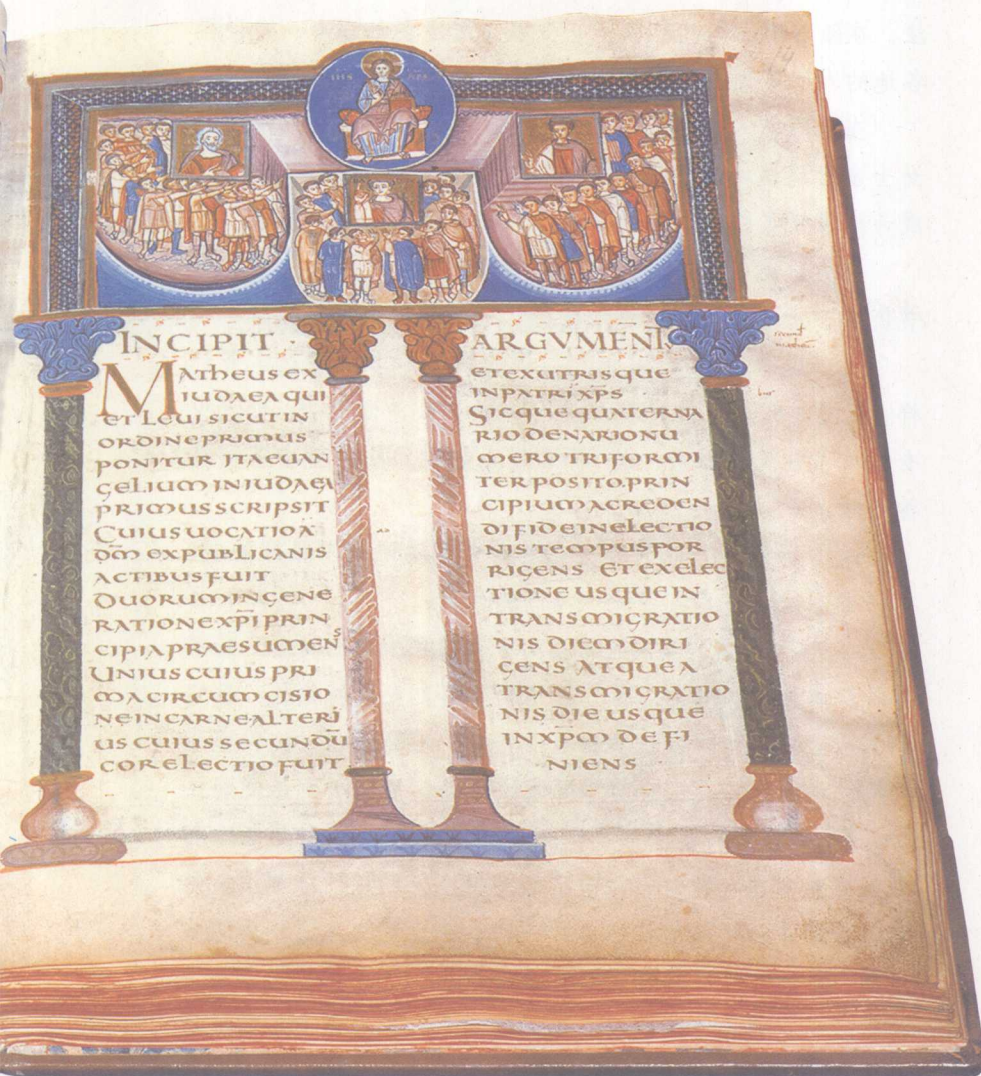 IHS XPS
INCIPIT · ARGVMENT
MATHEUS EX
IUDAEA QUI
ET LEUI SICUT IN
ORDINE PRIMUS
PONITUR ITA EUAN
GELIUM IN IUDAEA
PRIMUS SCRIPSIT
CUIUS UOCATIO A
DM̄ EX PUBLICANIS
ACTIBUS FUIT
DUORUM IN GENE
RATIONE XP̄I PRIN
CIPIA PRAESUMENS
UNIUS CUIUS PRI
MA CIRCUMCISIO
NE IN CARNE ALTERI
US CUIUS SECUNDŪ
COR ELECTIO FUIT
ET EX UTRISQUE
IN PATRI XP̄S
SICQUE QUATERNA
RIO DENARIO NU
MERO TRIFORMI
TER POSITO. PRIN
CIPIUM A CREDEN
DI FIDE IN ELECTIO
NIS TEMPUS POR
RIGENS ET EX ELEC
TIONE USQUE IN
TRANSMIGRATIO
NIS DIEM DIRI
GENS ATQUE A
TRANSMIGRATIO
NIS DIE USQUE
IN XP̄M DEFI
NIENS